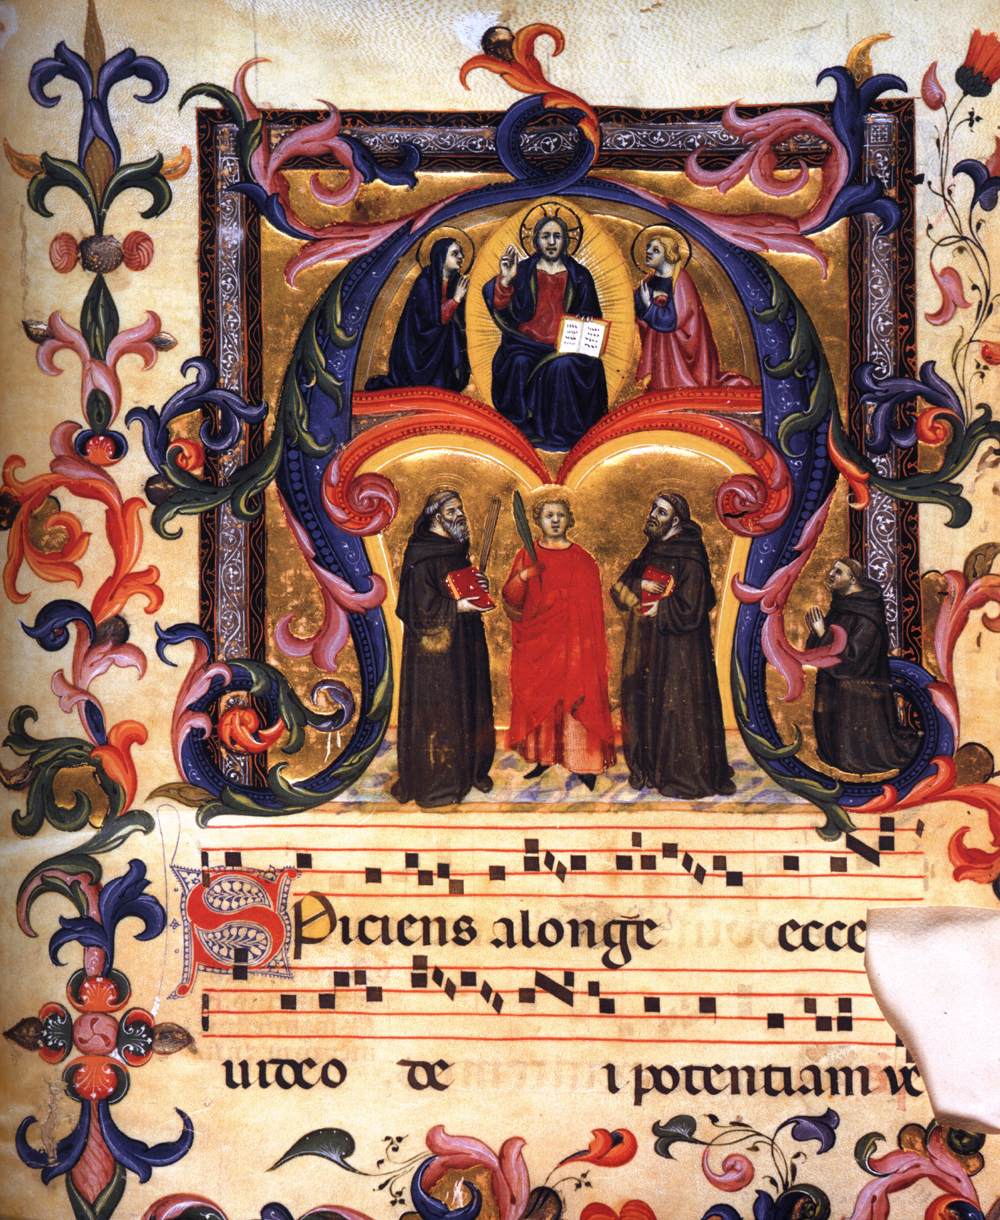 ASPiciens alongē ecce
uideo de i potentiam ve